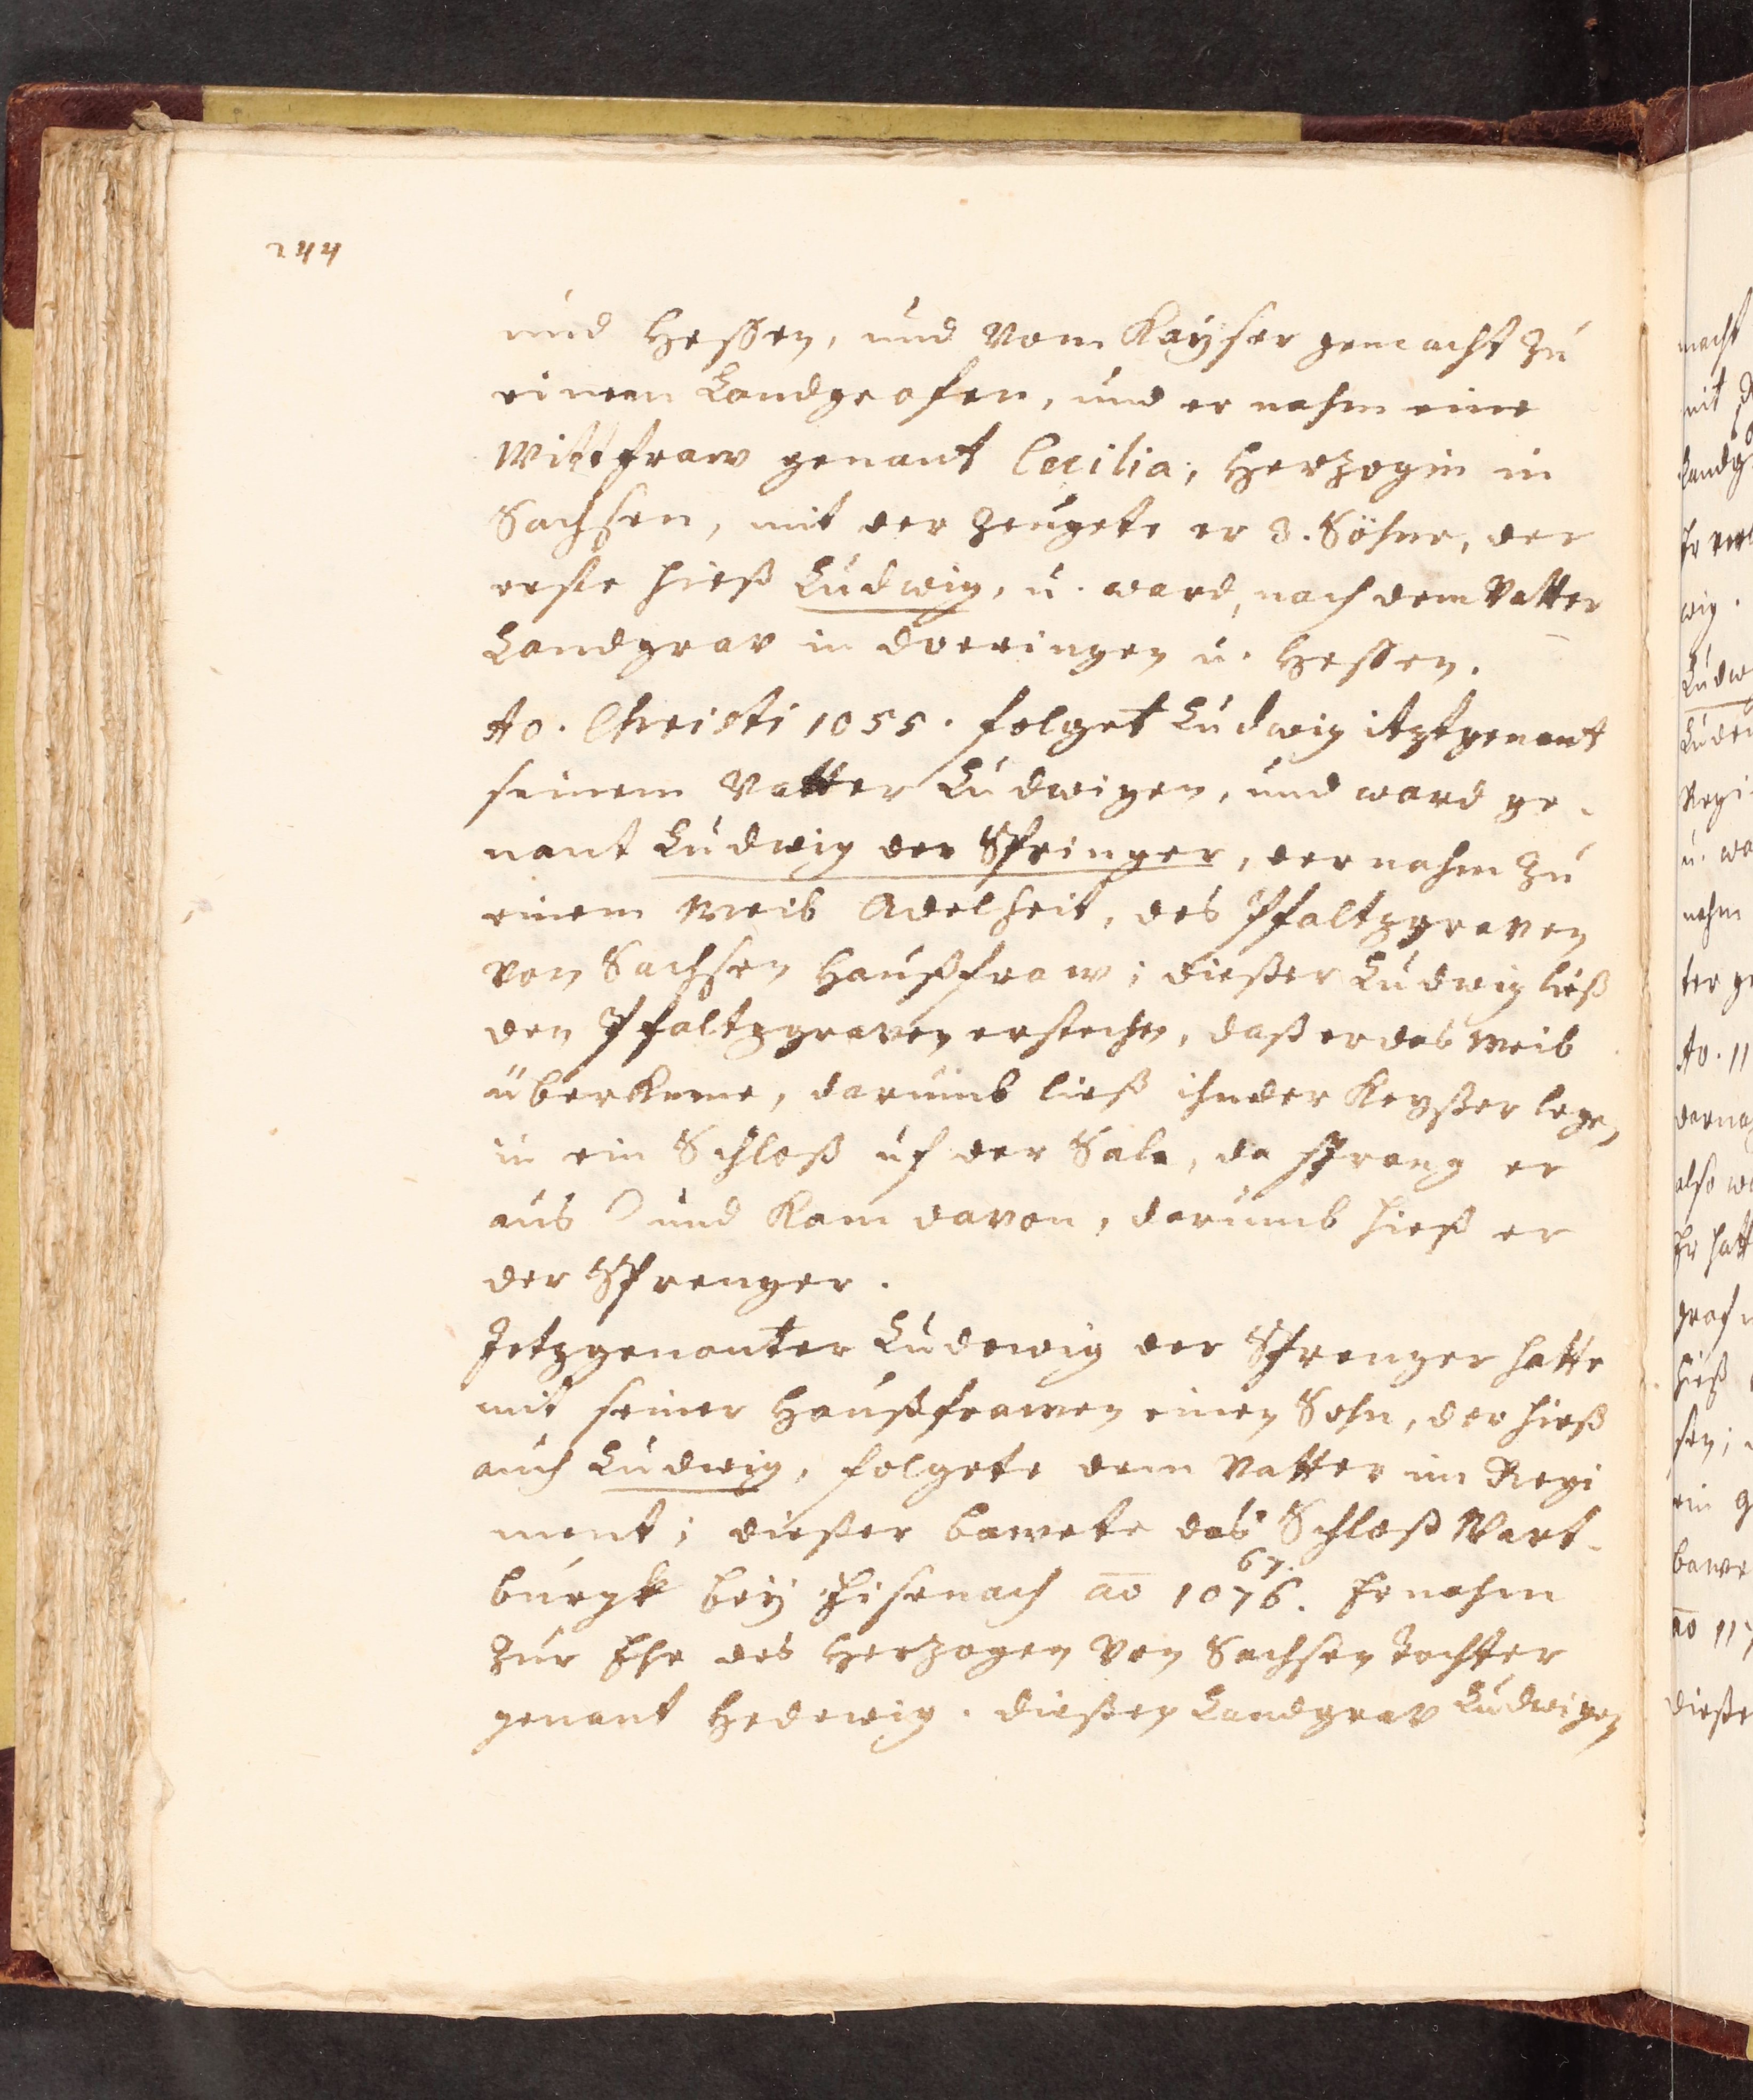 244
und Hessen, und vom Kayser gemacht zu
einem Landgrafen, und er nahm eine
Wittfraw genant Cecilia, Herzogin in
Sachsen, mit der zeugete er 3. Söhne, der
erste hieß Ludwig, u. ward, nach dem Vatter
Landgrav in Doeringen u. Hessen.
Ao. Christi 1055. folget Ludwig itztgenant
seinem Vatter Ludwigen, und ward ge-
nant Ludwig der Springer, der nahm zu
einem Weib Adelheit, des Pfaltzgraven
von Sachsen Haußfraw; dießer Ludwig ließ
den Pfaltzgraven erstechen, daß er das Weib
überkeme, darumb ließ ihn der Keyßer legen
in ein Schloß uf der Sale, da sprang er
aus und kam davon, darumb hieß er
der Sprenger.
Jetzgenanter Ludewig der Sprenger hatte
mit seiner Haußfrawen einen Sohn, der hieß
auch Ludwig, folgete dem Vatter im Regi
ment; dießer bawete das Schloß Wart-
67.
burgk bey Eisenach ao 1076. Er nahm
zur Ehe des Herzogen von Sachsen Tochter
genant Hedewig. Dießen Landgrav Ludwigen
macht
mit
Landg
wig.
Ludw
u. wa
nahm
ter ge
Ao. 11
also w
Er hatt
hieß
ein g
bawe
ao 117
dieße